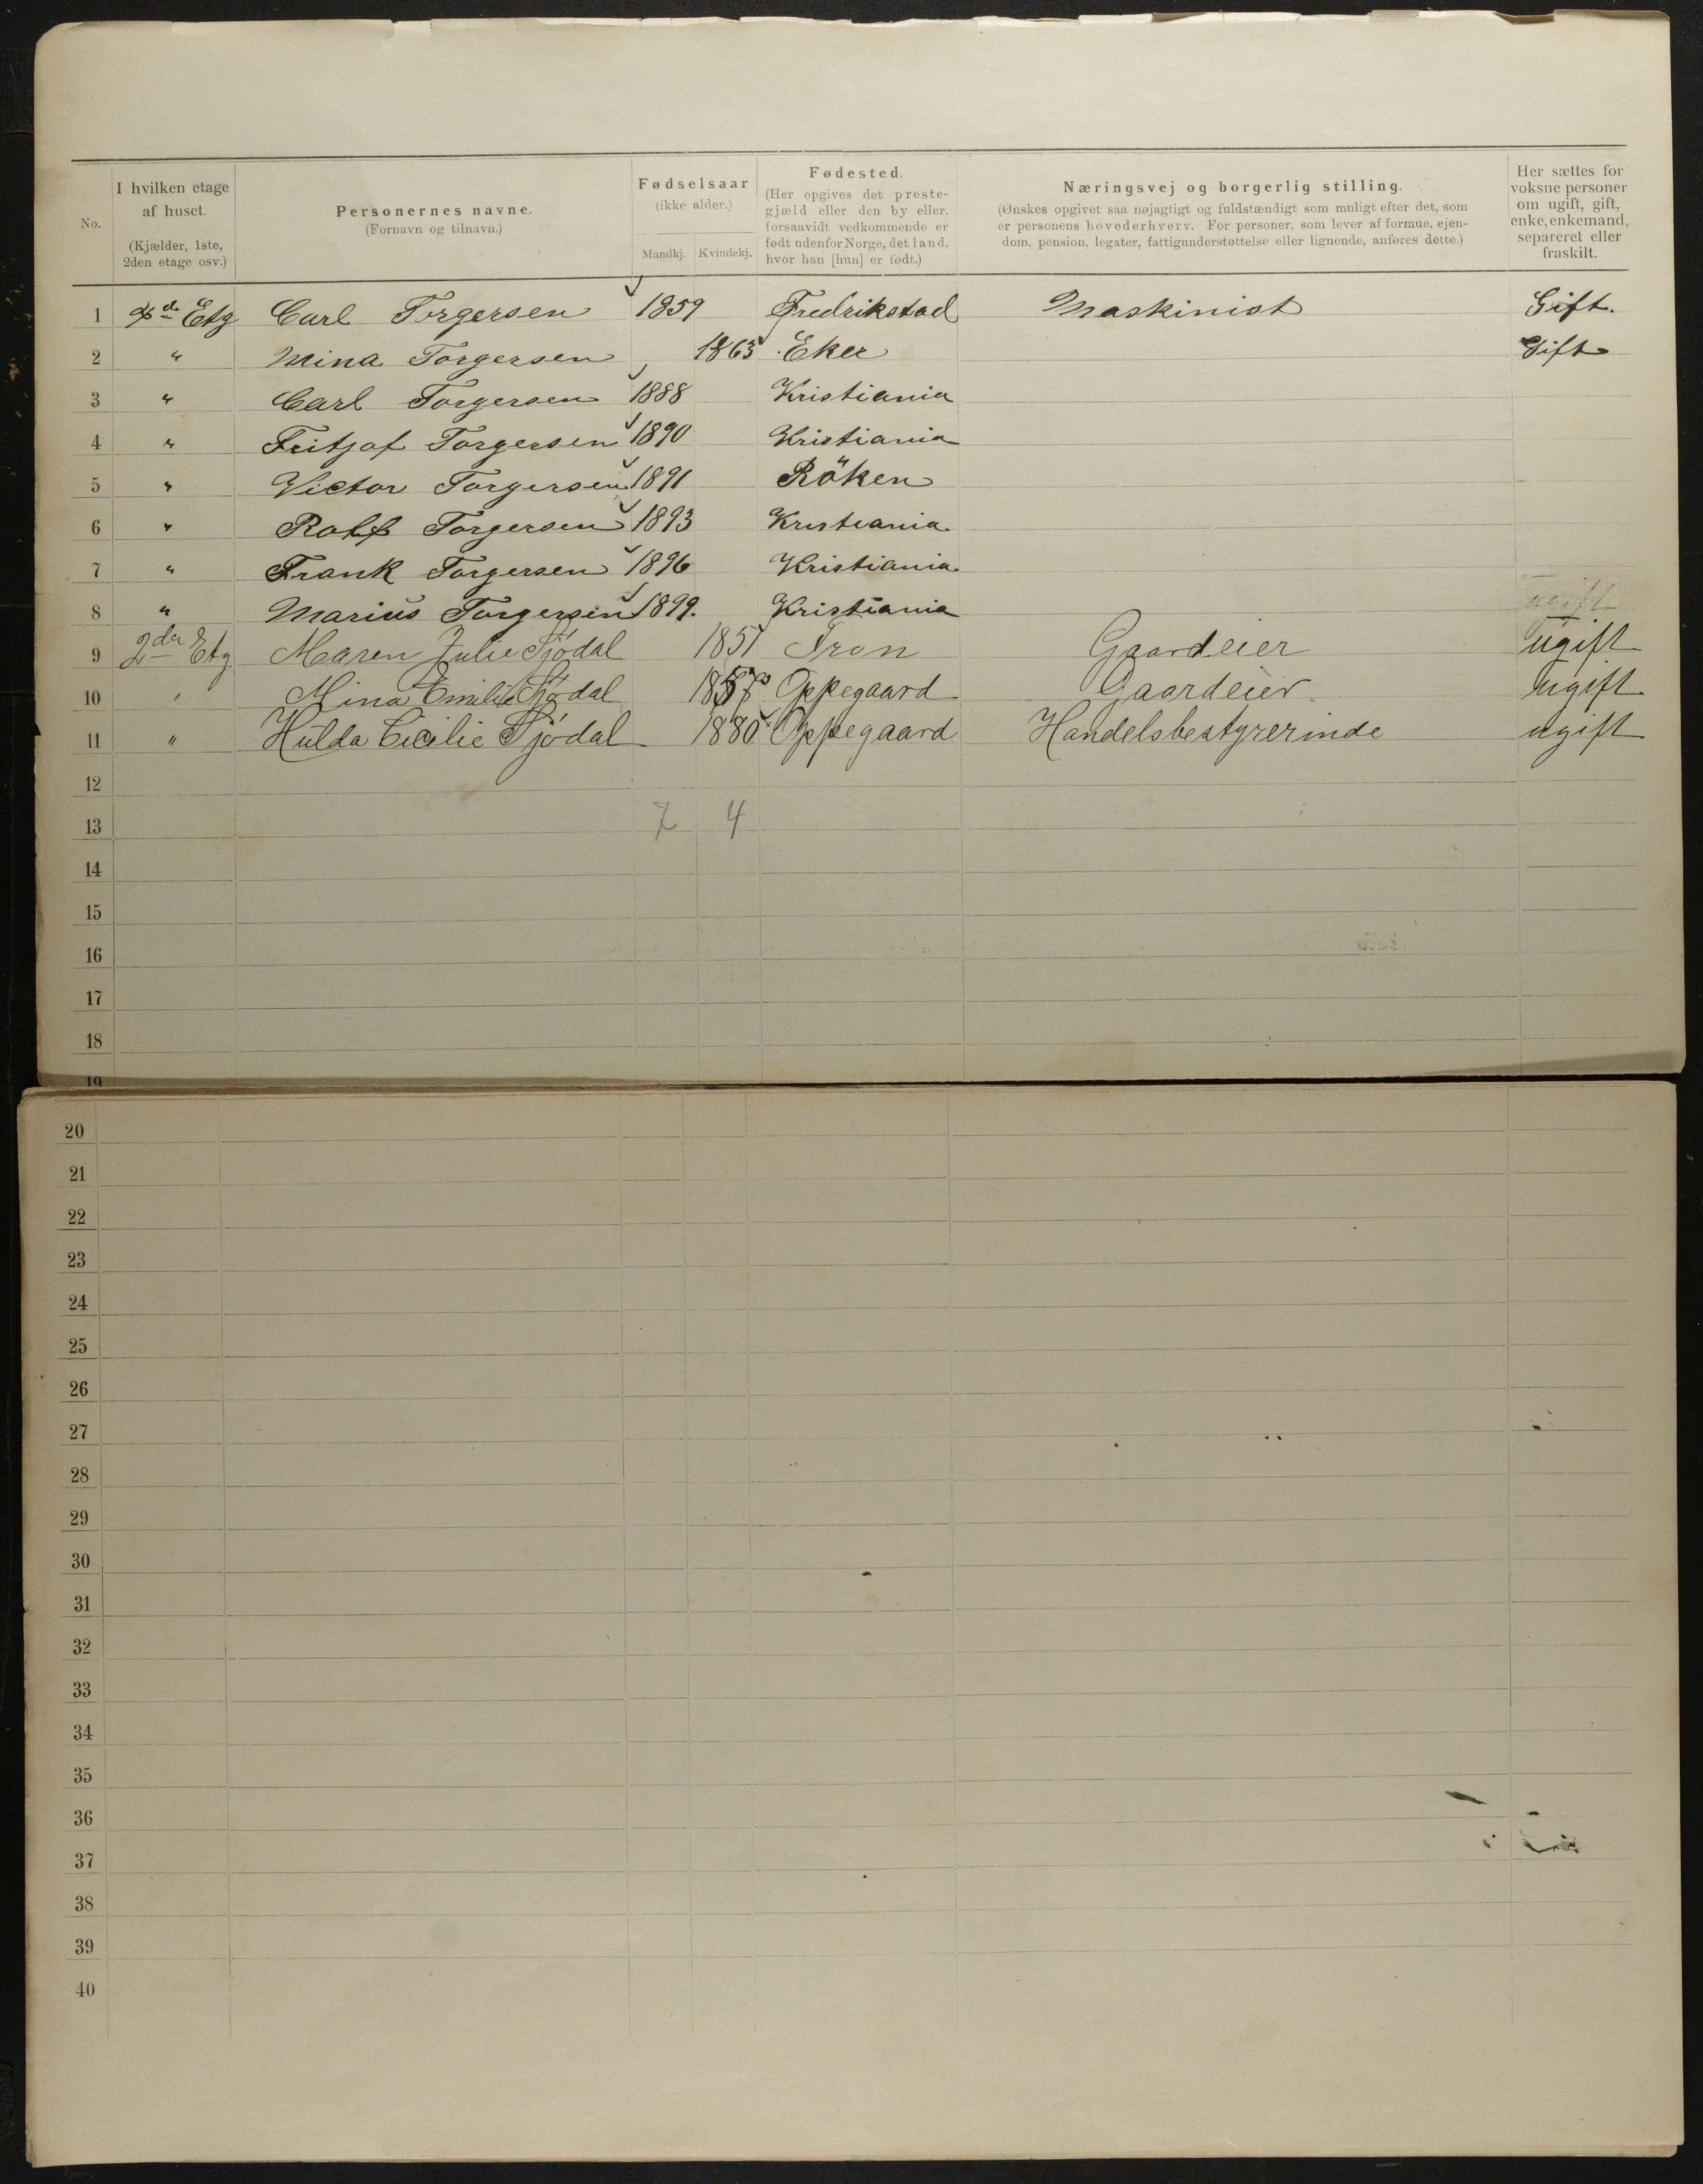 No. I hvilken etage af huset. (Kjælder, 1ste, 2den etage osv.) Personernes navne. (Fornavn og tilnavn.) Fødselsaar (ikke alder.) Mandkj. Kvindekj. Fødested. (Her opgives det prestegjæld eller den by eller, forsaavidt vedkommende er født udenfor Norge, det land, hvor han [hun] er født.) Næringsvej og borgerlig stilling. (Ønskes opgivet saa nøjagtigt og fuldstændigt som muligt efter det, som er personens hovederhverv. For personer, som lever af formue, ejendom, pension, legater, fattigunderstøttelse eller lignende, anføres dette.) Her sættes for voksne personer om ugift, gift, enke, enkemand, separeret eller fraskilt.
1 Etg Carl Torgersen 1859 Fredrikstad Maskinist Gift.
2 " Mina Torgersen 1863 Eker Gift
3 " Carl Torgersen 1888 Kristiania
4 " Fritjof Torgersen 1890 Kristiania
5 " Victor Torgersen 1891 Röken
6 " Rolf Torgersen 1893 Kristiania
7 " Frank Torgersen 1896 Kristiania
8 " Marius Torgersen 1899. Kristiania
ugift
9 2den Etg Maren Julie Sjödal 1851 Gaardeier ugift
10 " Mina Emilie Sjödal 1857 Oppegaard Gaardeier ugift
11 " Hulda Cicilie Sjödal 1880 Oppegaard Handelsbestyrerinde ugift
12
13 7 4
14
15
16
17
18
19
20
21
22
23
24
25
26
27
28
29
30
31
32
33
34
35
36
37
38
39
40